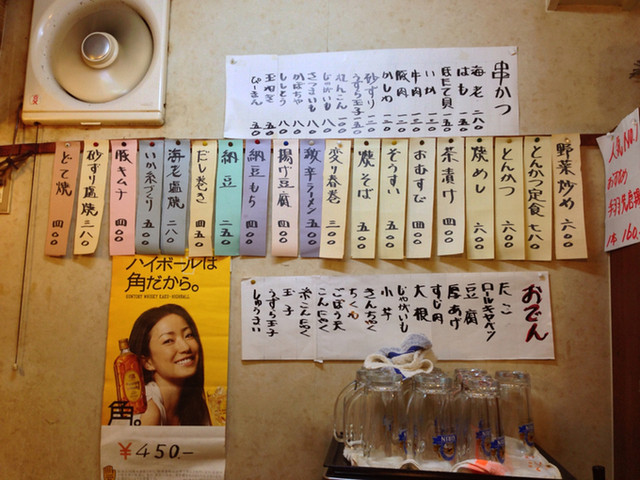 串かつ
海老 二八〇
はも 二五〇
ほたて貝 二五〇
いか 一五〇
牛肉
豚肉
かしわ
砂ずり
うずら玉子 一五〇
れんこん 一〇〇
じゃがいも 八〇
さつまいも 八〇
かぼちゃ 八〇
ししとう 八〇
玉ねぎ 五〇
ぴーまん 五〇
野菜炒め 六〇〇
とんかつ定食 七八〇
とんかつ 六〇〇
焼めし 六〇〇
茶漬け 四〇〇
おむすび 四〇〇
ぞうすい 四〇〇
焼そば 五〇〇
変り春巻 三〇〇
激辛ラーメン 五五〇
揚げ豆腐 四〇〇
納豆もち 四〇〇
納豆 二五〇
だし巻き 四五〇
海老塩焼 三八〇
いか糸づくり 五〇〇
豚キムチ 四〇〇
砂ずり塩焼 三八〇
とて焼 四〇〇
人気NO.1
おすすめ
1本 160.
おでん
たこ
ロールキャベツ
豆腐
厚あげ
すじ肉
大根
じゃがいも
小芋
きんちゃく
ちくわ
ごぼう天
こんにゃく
糸こんにゃく
玉子
うずら玉子
しゅうまい
ハイボールは
角だから。
SUNTORY WHISKY KAKU-HIGHBALL
角。
¥450.-